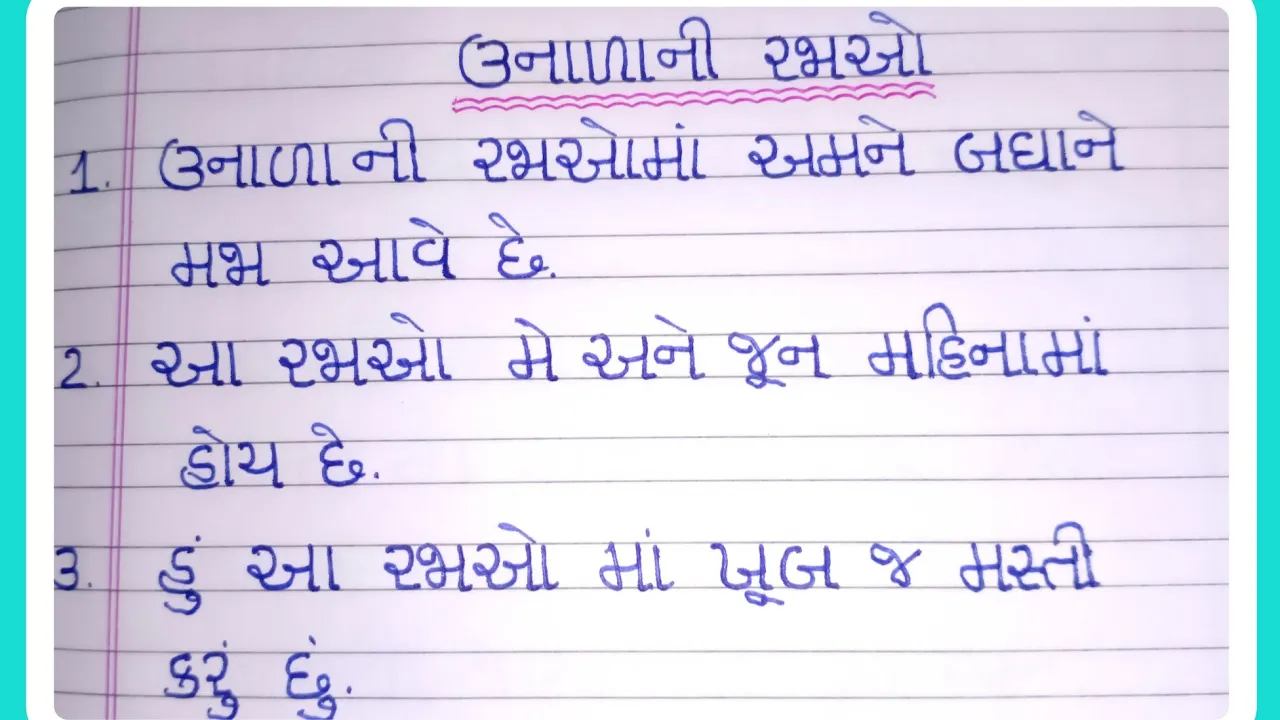 ઉનાળાની રજાઓ
1. ઉનાળાની રજાઓમાં અમને બધાને
મજા આવે છે.
2. આ રજાઓ મે અને જૂન મહિનામાં
હોય છે.
3. હું આ રજાઓ માં ખૂબ જ મસ્તી
કરું છું.